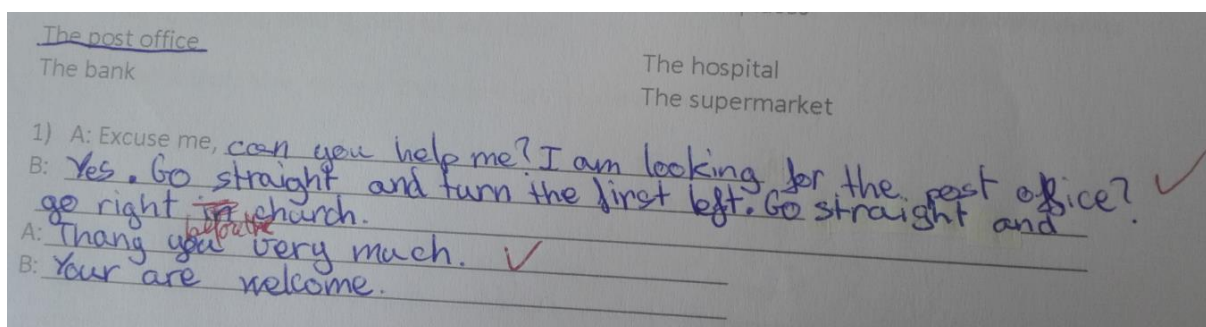 The post office
The bank
The hospital
The supermarket
1) A: Excuse me, can you help me? I am looking for the post office?
B: Yes. Go straight and turn the first left. Go straight and
go right in church.
A: Thang you very much.
B: Your are welcome.